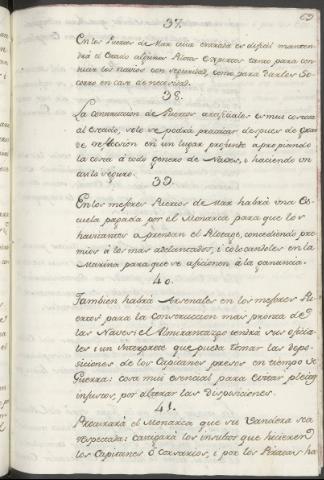 37.
En los Puertos de Mar cuia entrada es dificil manten
drá el Estado algunos Pilotos Expertos tanto para con
ducir los navios con seguridad, como para darles So
corro en caso de necesidad.
38.
La construccion de Puertos artificiales es mui costosa
al Estado, solo se podrá practicar despues de gran
de reflexion en un lugar profundo apropiando
la costa á todo genero de Naves, i haciendo un
asilo seguro.
39.
En los mejores Puertos de Mar habrá una Es
cuela pagada por el Monarca para que los
havitantes aprendan el Pilotage, concediendo pre
mios á los mas adelantados, i colocandoles en la
Marina para que se aficionen á la ganancia.
40.
Tambien habrá Arsenales en los mejores Pu
ertos para la Construccion mas pronta de
las Naves: el Almirantazgo tendrá sus oficia
les i un Interprete que pueda tomar las depo
siciones de los Capitanes presos en tiempo de
Guerra: cosa mui esencial para evitar pleitos
injustos, por alterar las disposiciones.
41.
Procurará el Monarca que su Vandera sea
respetada: castigará los insultos que hicieren
los Capitanes ó Corsarios, i por los Piratas ha